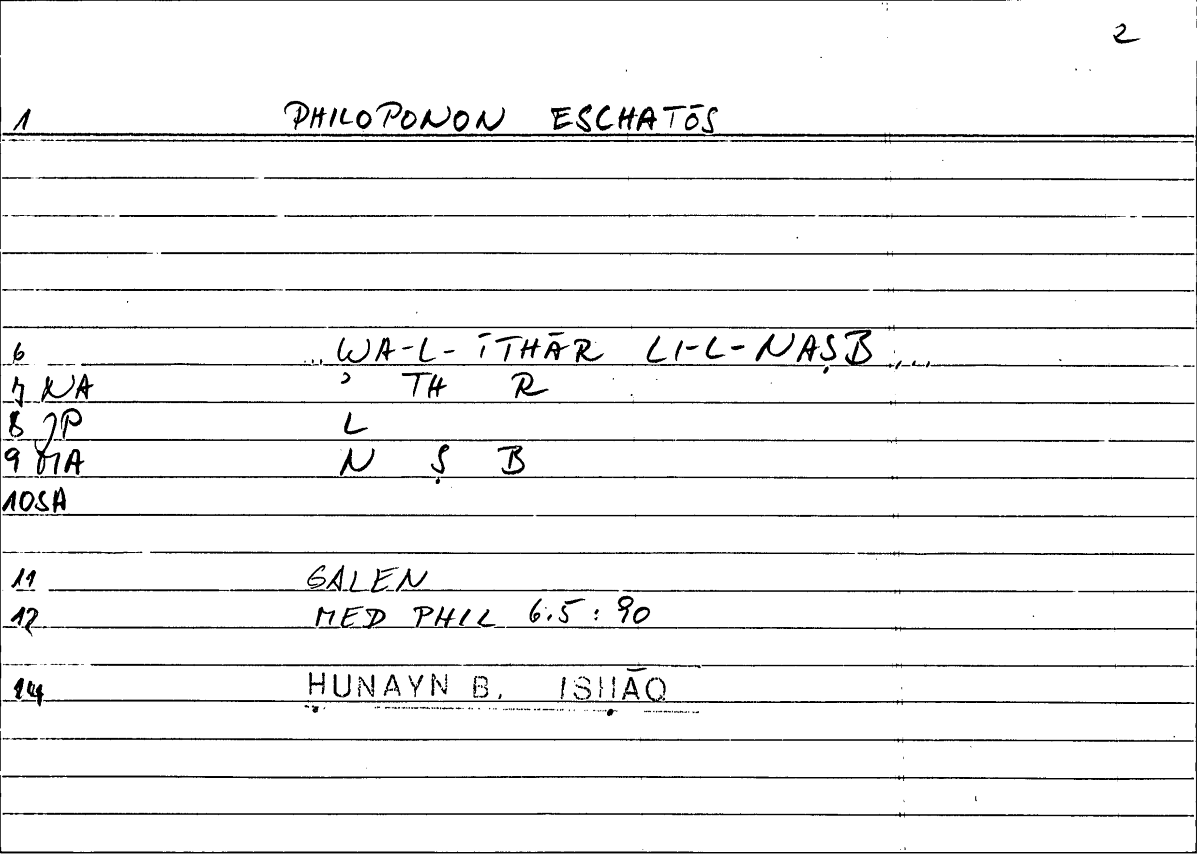 2
1 PHILOPONON ESCHATŌS
6 ...WA-L-ĪTHĀR LI-L-NAṢB...
7 NA ʾ TH R
8 JP L
9 MA N Ṣ B
10SA
11 GALEN
12 MED PHIL 6.5 : 90
14 ḤUNAYN B. ISḤĀQ